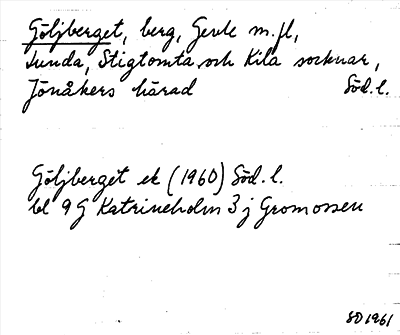 Göljberget, berg, Gerle m.fl,
Lunda, Stigtomta och Kila socknar,
Jönåkers härad Söd. l.
Göljberget ek (1960) Söd. l.
bl 9 G Katrineholm 3 j Gromossen
SD 1961